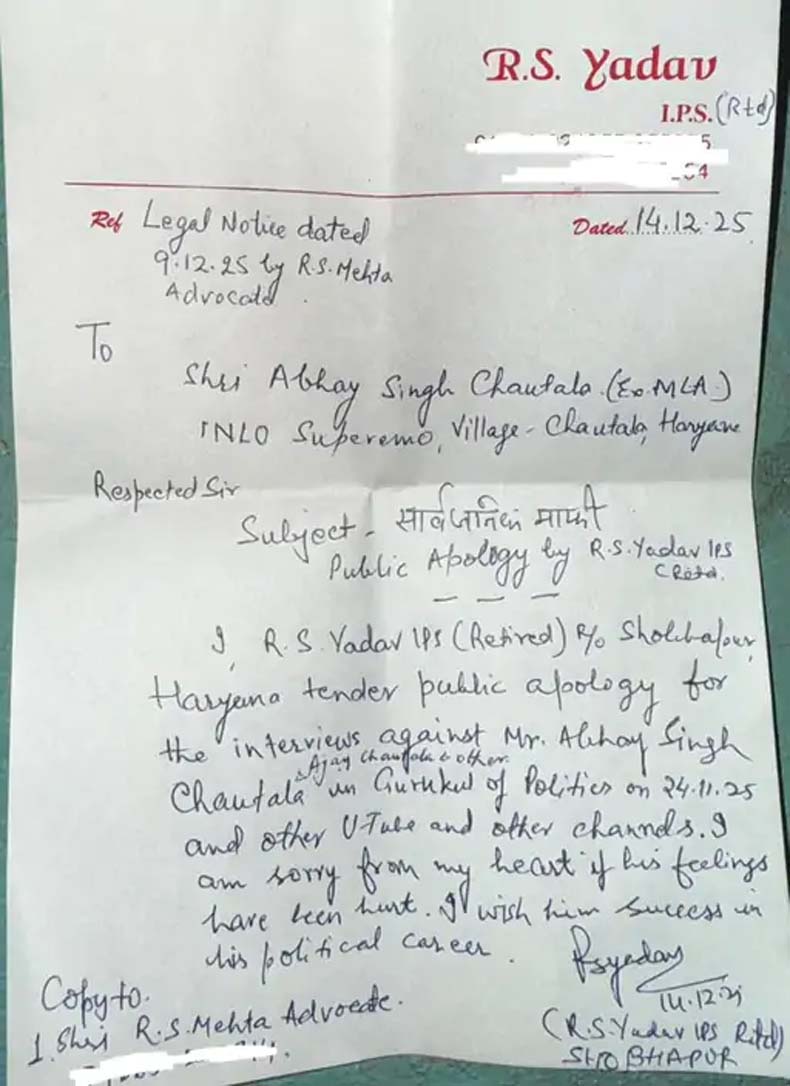 R.S. Yadav
I.P.S. (Rtd)
5
4
Ref Legal Notice dated
9.12.25 by R.S. Mehta
Advocate.
Dated. 14.12.25
To
Shri Abhay Singh Chautala. (Ex. MLA.)
INLO Superemo, Village - Chautala, Haryana
Respected Sir
Subject - सार्वजनिक माफी
Public Apology by R.S. Yadav IPS
(Retd.
I, R.S. Yadav IPS (Retired) R/o Shobhapur,
Haryana tender public apology for
the interviews against Mr. Abhay Singh
Ajay Chautala & other
Chautala in Gurukul of Politics on 24.11.25
and other U-Tube and other channels. I
am sorry from my heart if his feelings
have been hurt. I wish him success in
his political career.
Rsyadav
14.12.25
(R.S. Yadav IPS Retd)
SHOBHAPUR
Copy to.
1. Shri R.S. Mehta Advocate.